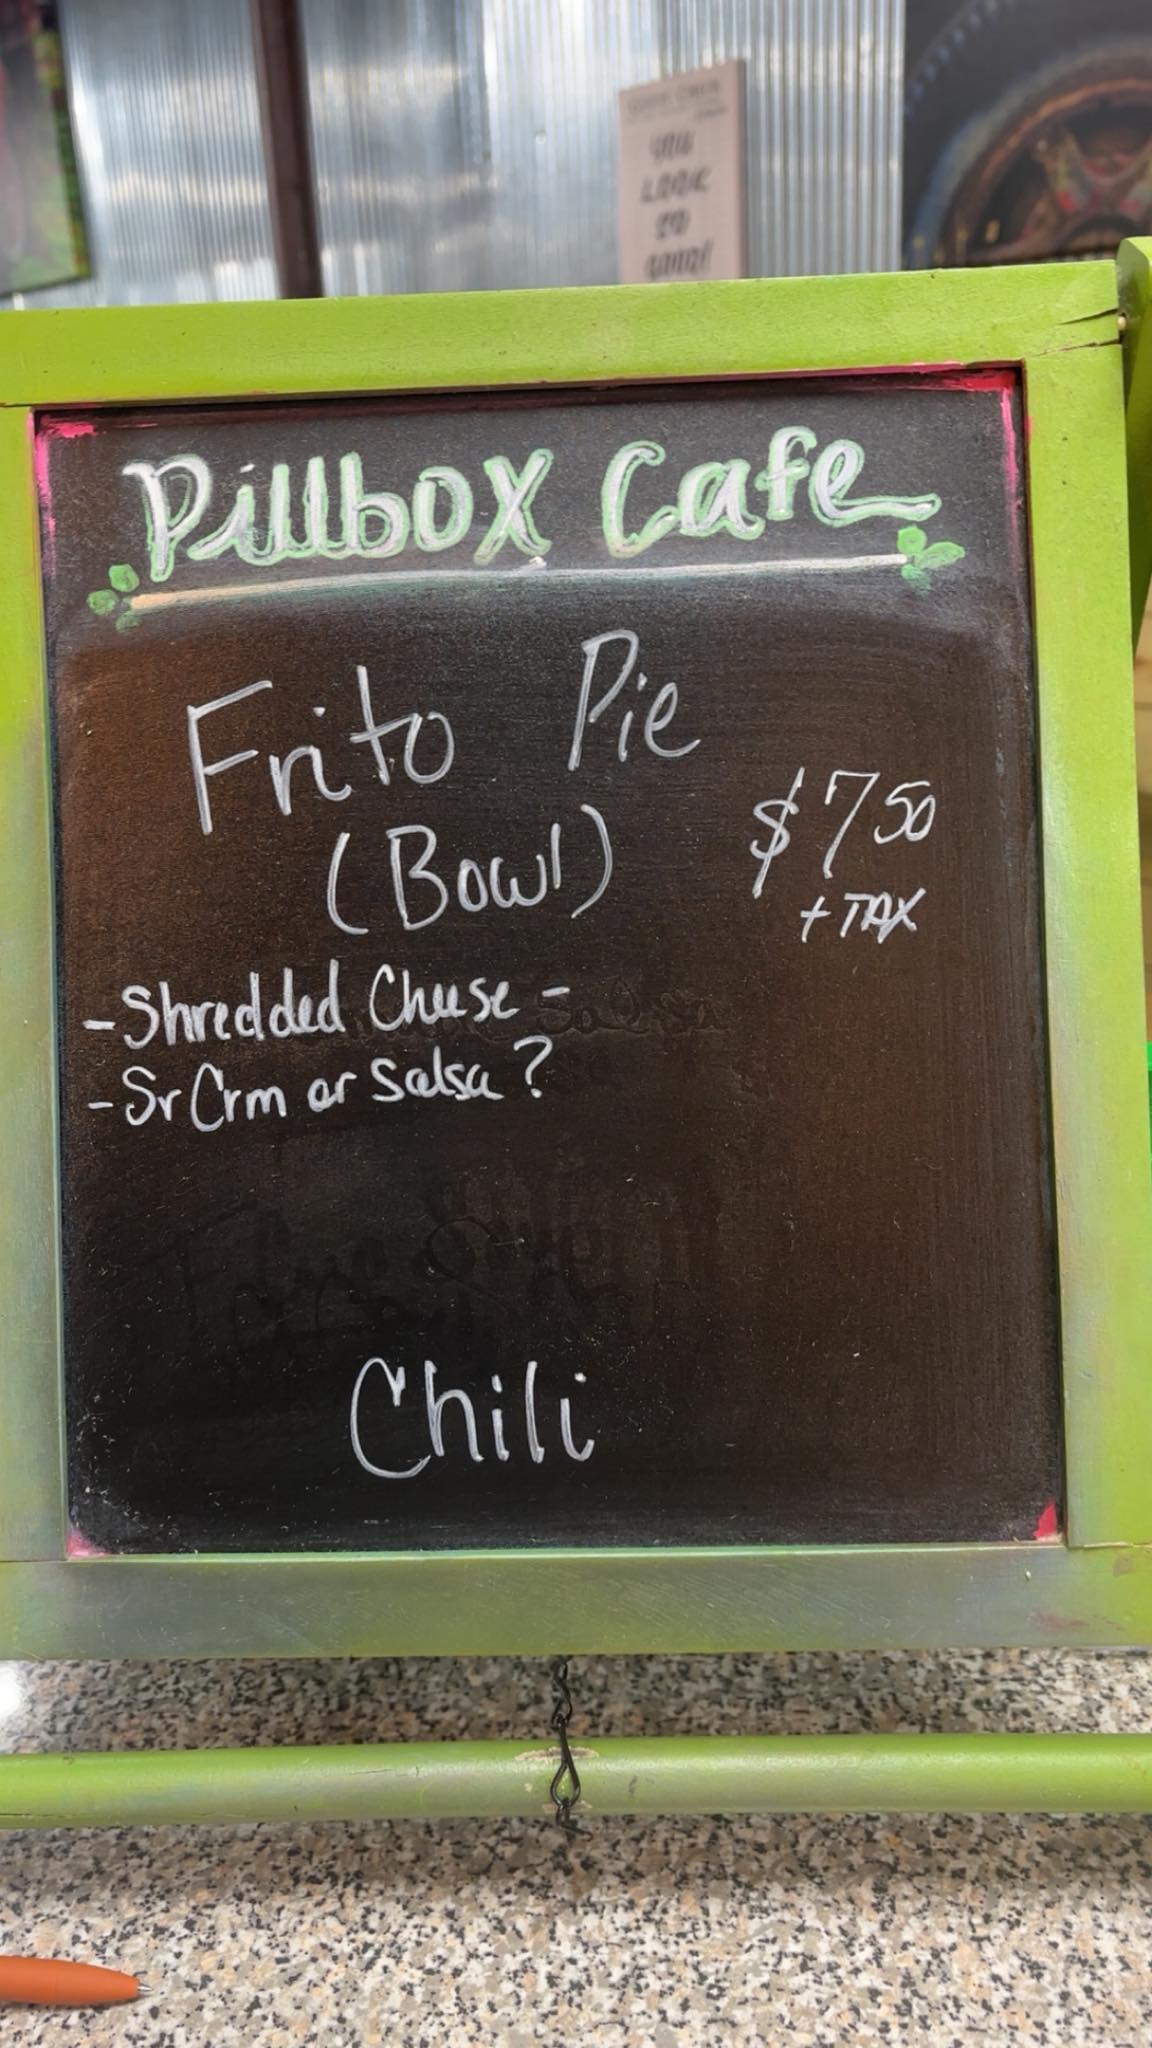 YOU
LOOK
SO
GOOD!
Pillbox Cafe
Frito Pie
(Bowl)
$7 50
+ TAX
- Shredded Cheese -
- Sr Crm or Salsa ?
Chili